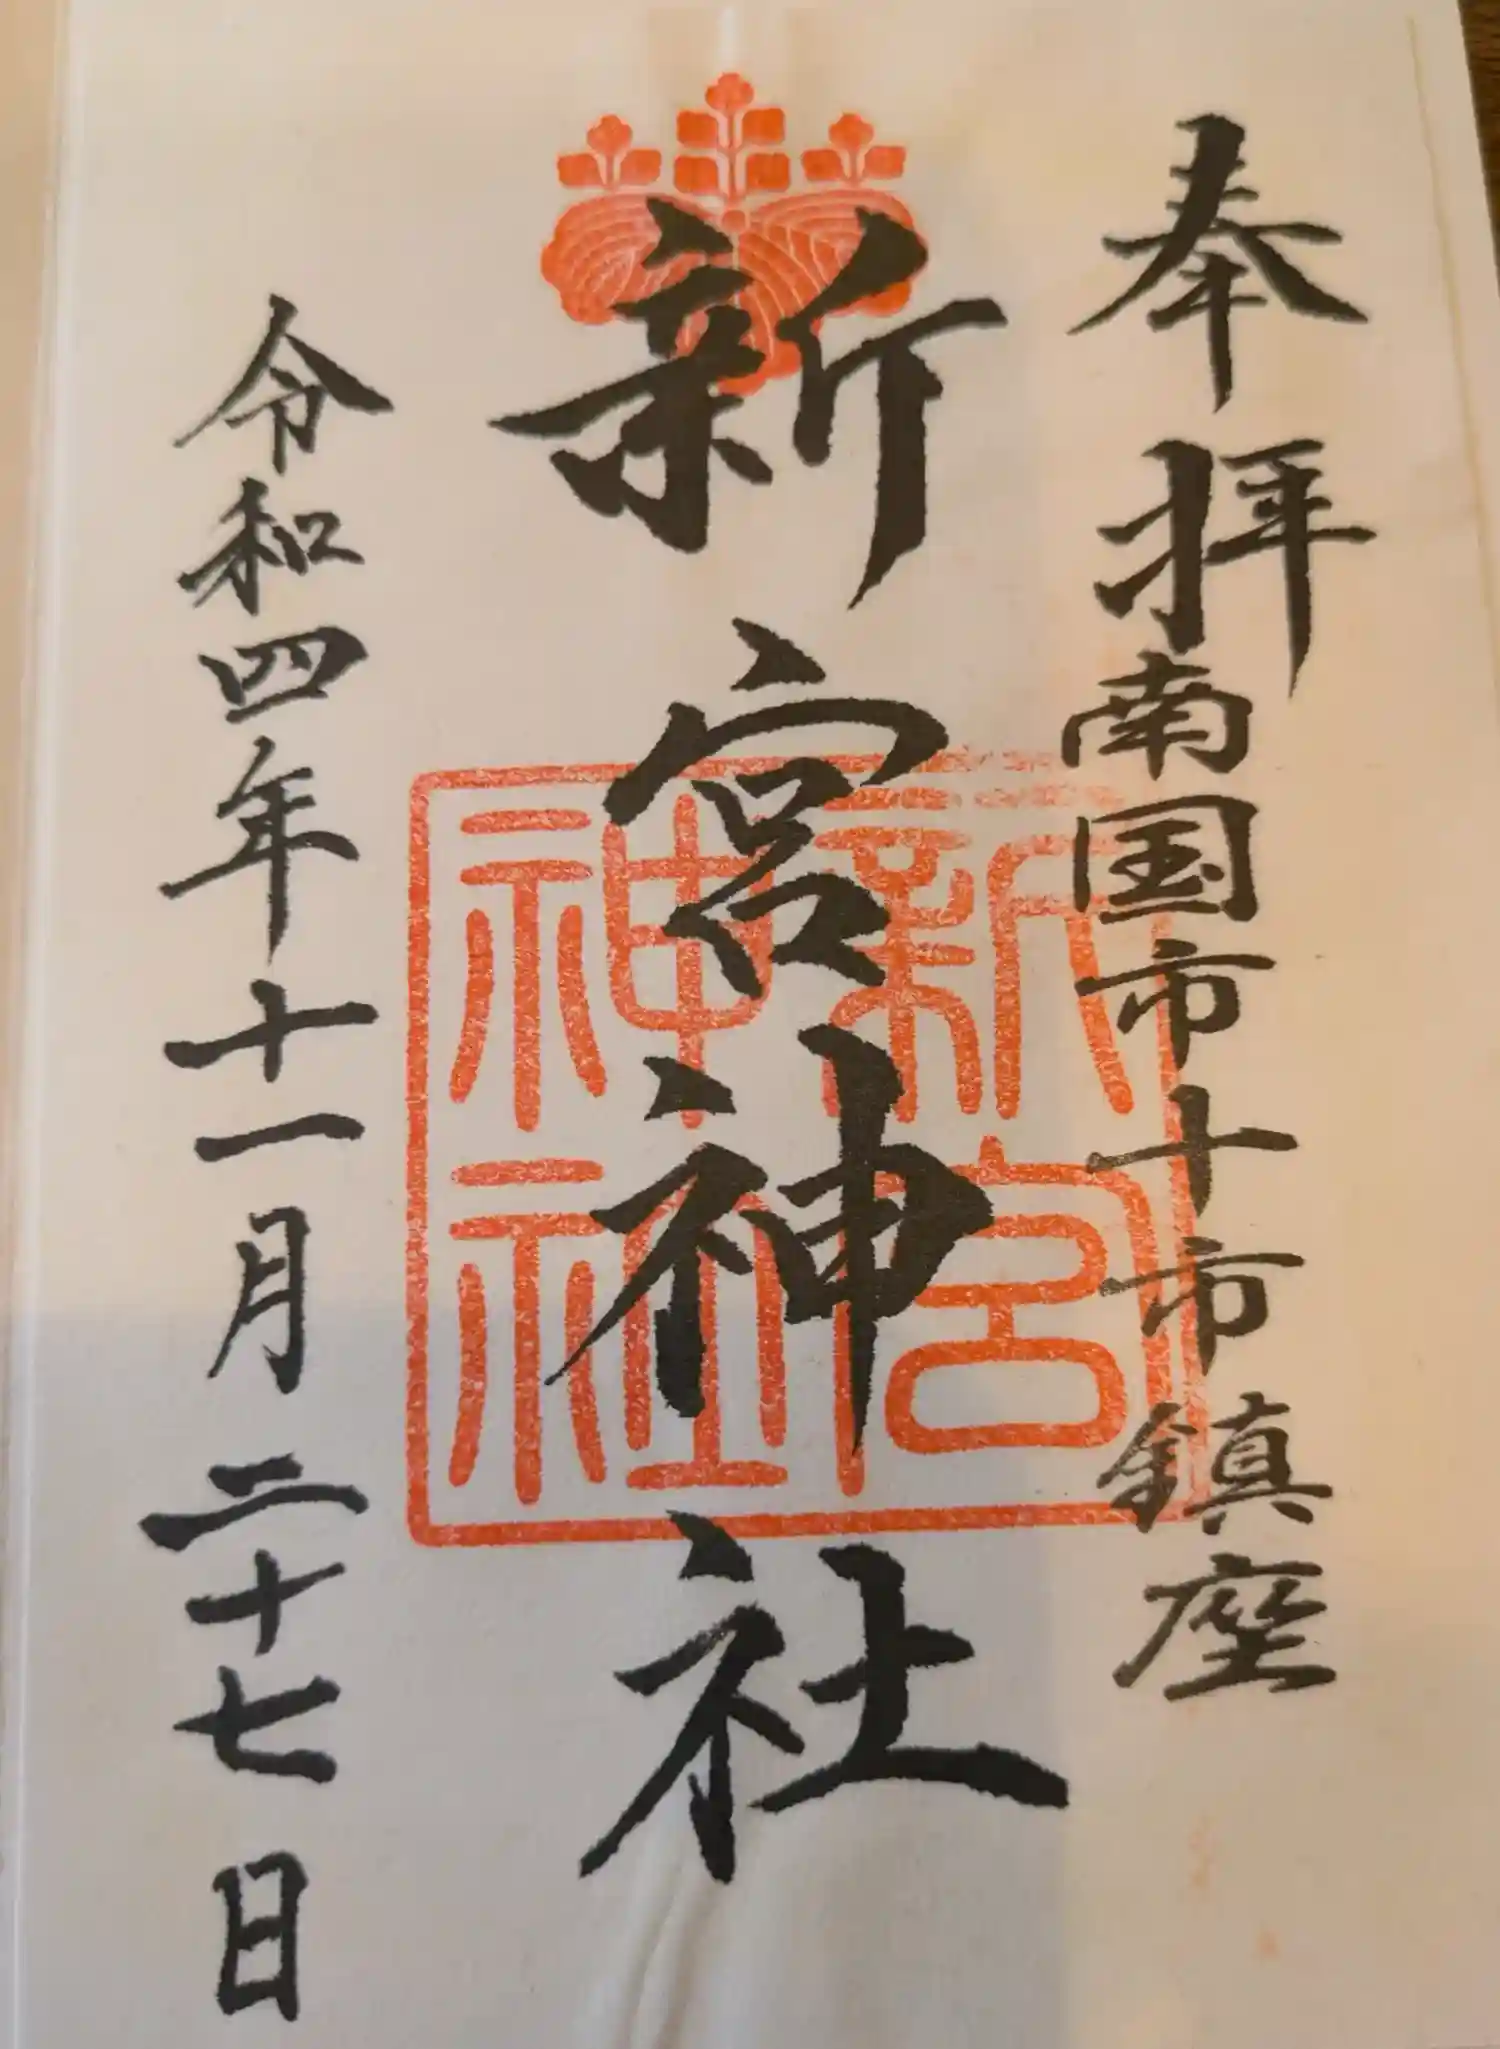 奉拝
南国市十市鎮座
新宮神社
新宮神社
令和四年十一月二十七日